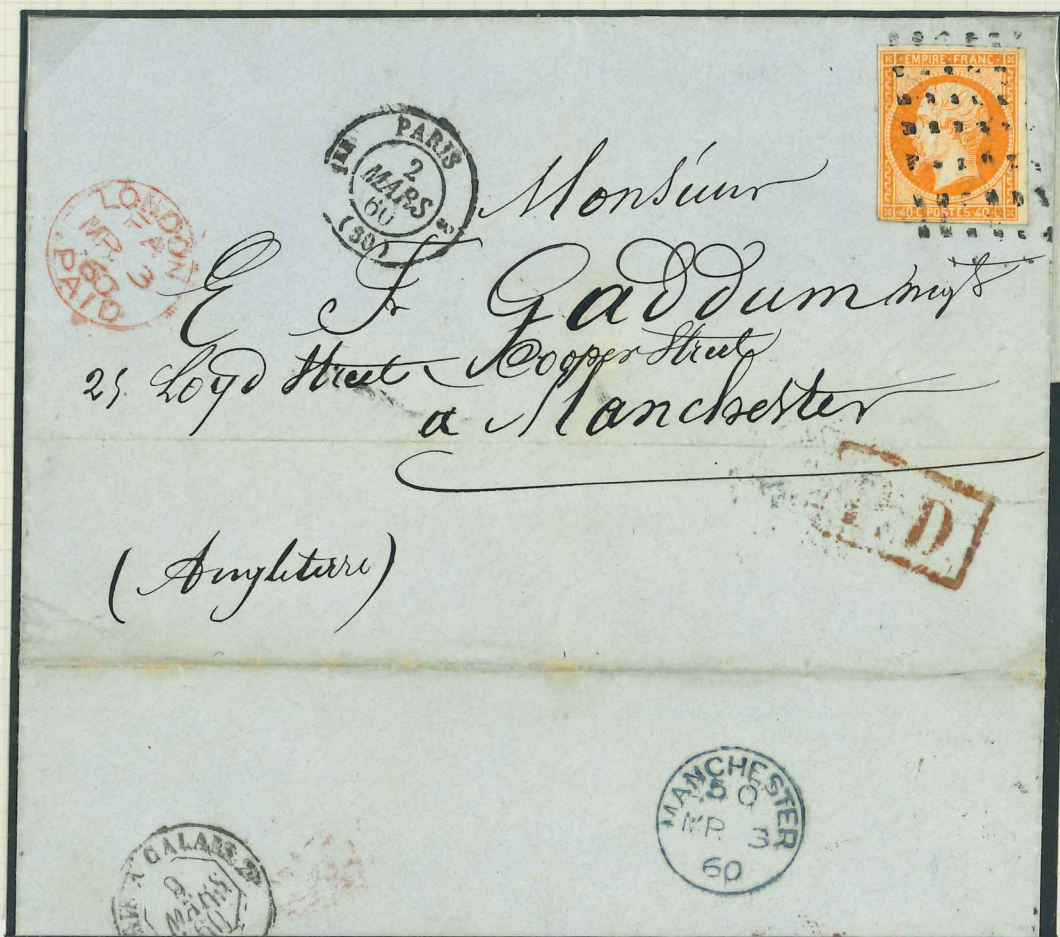 EMPIRE · FRANC
40·C·POSTES·40·C
PARIS
2
MARS
60
(60)
LONDON
FA
MR 3
60
PAID
Monsieur
E Fr Gaddum
25 Loyd Street Cooper Street
a Manchester
(Angleterre)
P.D.
MANCHESTER
5 Q
MR 3
60
A CALAIS
2
MARS
60